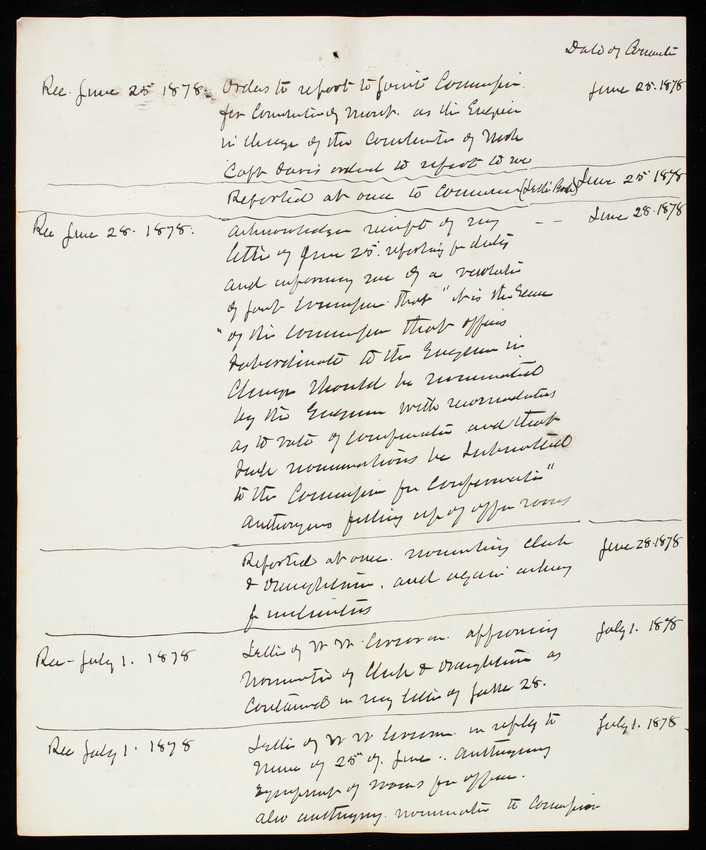 Date of Comntn
Rec. June 25 1878. Orders to report to Joint Commission June 25. 1878
for Completion of Monmt. as the Engineer
in charge of the Construction of Work
Capt Davis ordered to report to me
Reported at once to Commission (Letter Book) June 25 1878
Rec June 28. 1878. Acknowledges receipt of my -- June 28. 1878
letter of June 25. reporting for duty
and informing me of a resolution
of Joint Commission that "it is the sense
"of the Commission that officers
subordinate to the Engineer in
charge should be nominated
by the Engineer with recommendations
as to rate of compensation and that
such nominations be submitted
to the Commission for confirmation"
authorizes fitting up of office rooms
Reported at once. nominating Clerk June 28. 1878
& Draughtsman. and again asking
for instructions
Rec - July 1. 1878 Letter of W W Corcoran approving July 1. 1878
nomination of Clerk & Draughtsman as
contained in my letter of June 28.
Rec July 1. 1878 Letter of W W Corcoran in reply to July 1. 1878
mine of 25 of June. authorizing
of rooms for office.
also authorizing nomination to Commission